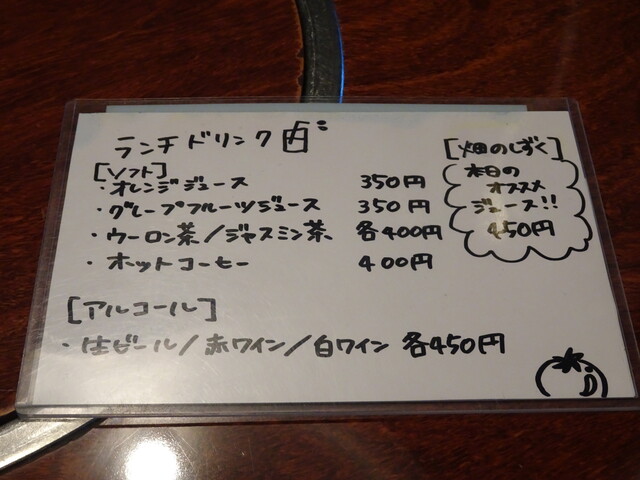 ランチドリンク
[ソフト]
・オレンジジュース 350円
・グレープフルーツジュース 350円
・ウーロン茶/ジャスミン茶 各400円
・ホットコーヒー 400円
[アルコール]
・生ビール/赤ワイン/白ワイン 各450円
[畑のしずく]
本日の
オススメ
ジュース!!
450円